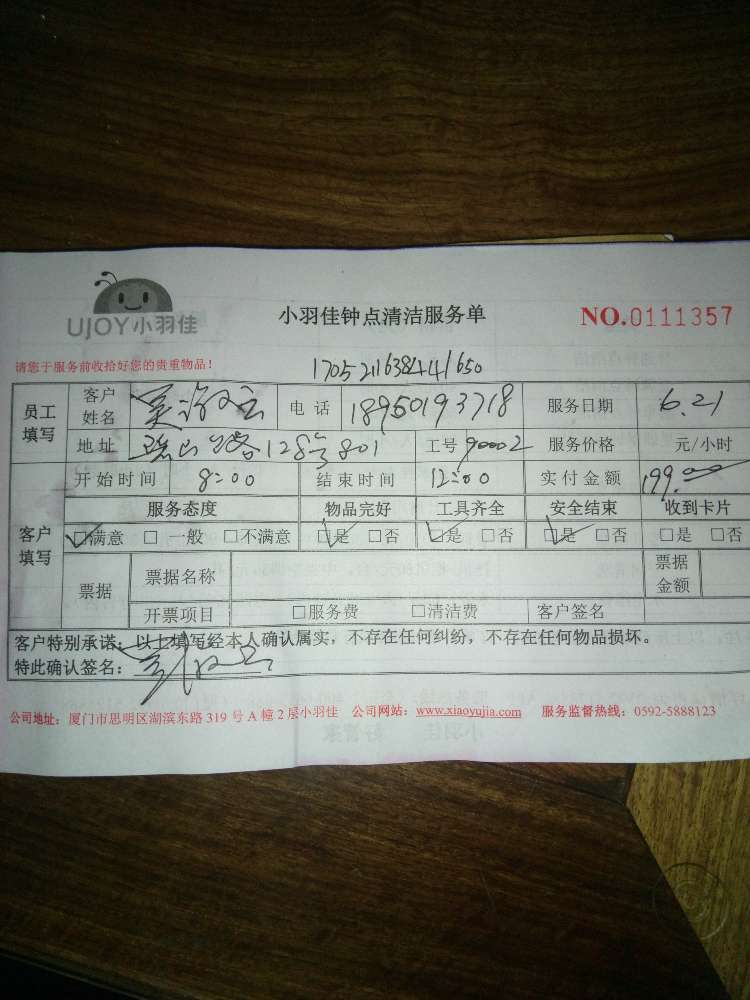 UJOY小羽佳
小羽佳钟点清洁服务单
NO.0111357
请您于服务前收拾好您的贵重物品！
1705211638441650
员工填写 客户姓名 电话 18950193718 服务日期 6.21
地址 128号801 工号 90002 服务价格 元/小时
客户填写 开始时间 8:00 结束时间 12:00 实付金额 199.00
服务态度 物品完好 工具齐全 安全结束 收到卡片
☑满意 □一般 □不满意 ☑是 □否 ☑是 □否 ☑是 □否 □是 □否
票据 票据名称 票据金额
开票项目 □服务费 □清洁费 客户签名
客户特别承诺：以上填写经本人确认属实，不存在任何纠纷，不存在任何物品损坏。
特此确认签名：
公司地址：厦门市思明区湖滨东路 319 号 A 幢 2 层小羽佳 公司网站：www.xiaoyujia.com 服务监督热线：0592-5888123